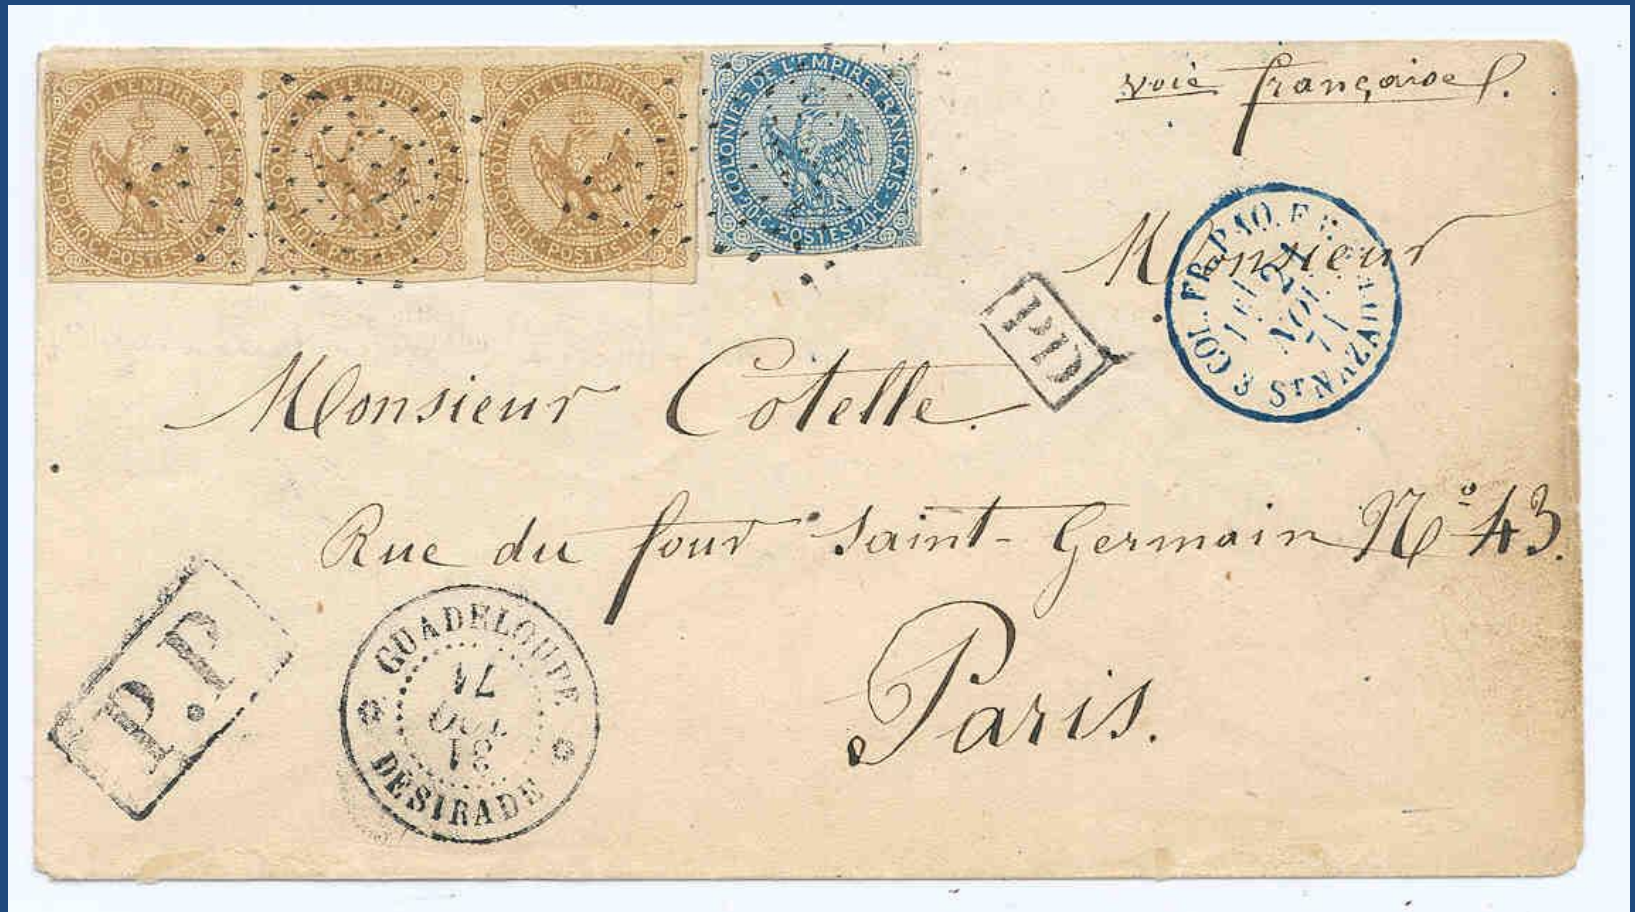 COLONIES DE L'EMPIRE FRANÇAIS 10C POSTES 10C
COLONIES DE L'EMPIRE FRANÇAIS 10C POSTES 10C
COLONIES DE L'EMPIRE FRANÇAIS 10C POSTES 10C
COLONIES DE L'EMPIRE FRANÇAIS 20C POSTES 20C
voie française
Monsieur
COL. FR. PAQ. F
21
NOV
71
3 ST NAZAIRE
PD
Monsieur Cotelle.
Rue du four Saint-Germain No 43.
Paris.
P.P
GUADELOUPE
71
OCT
31
DESIRADE